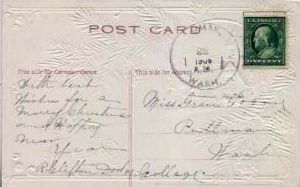 POST CARD
This side for Correspondence
This side for Address
22
A.M.
WASH.
ONE CENT
With best
Wishes for a
Merry Christmas
and Happy
New
Year
R. Clifton
Miss
Pullman
Wash
College